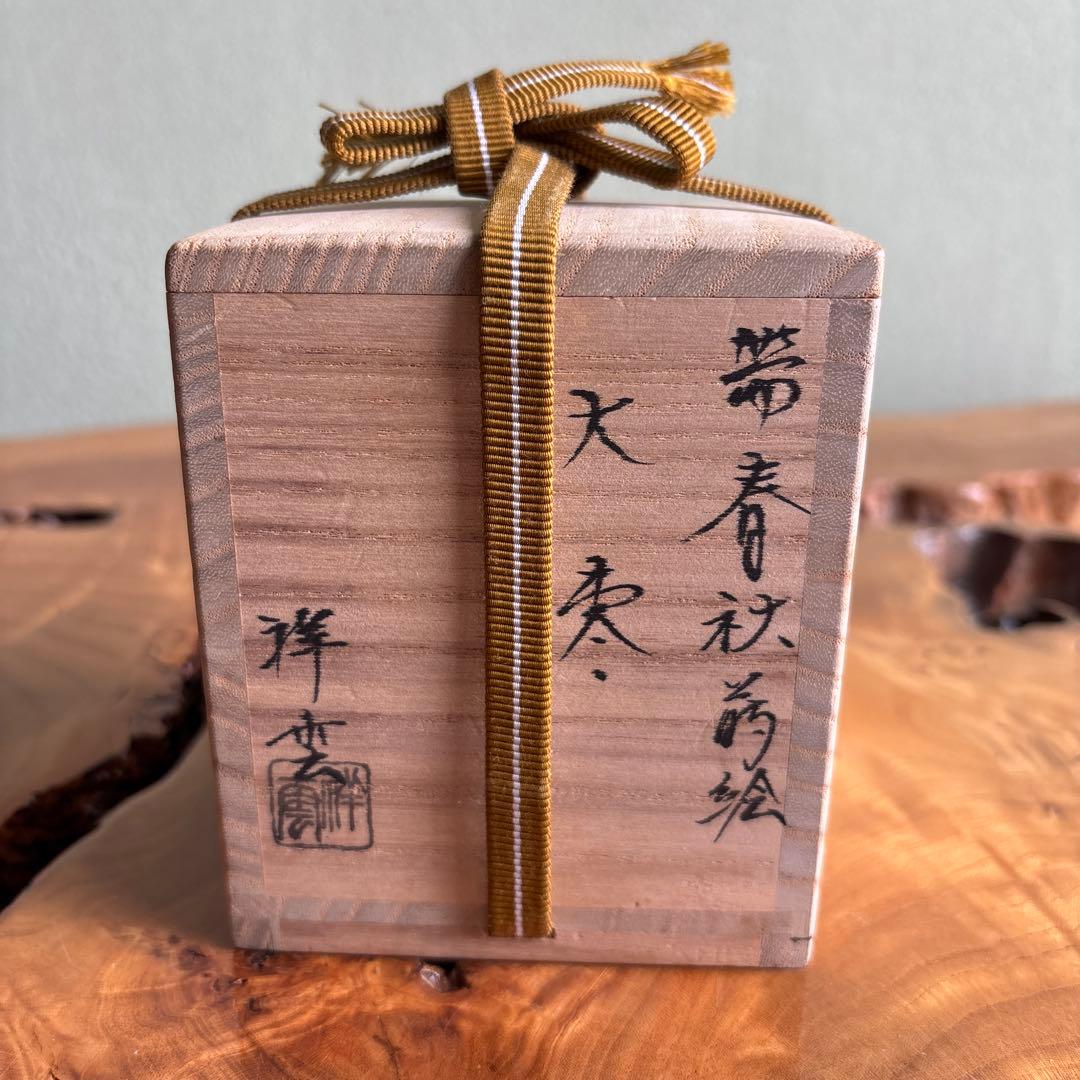 帯春秋蒔絵
大棗
祥雲
祥雲